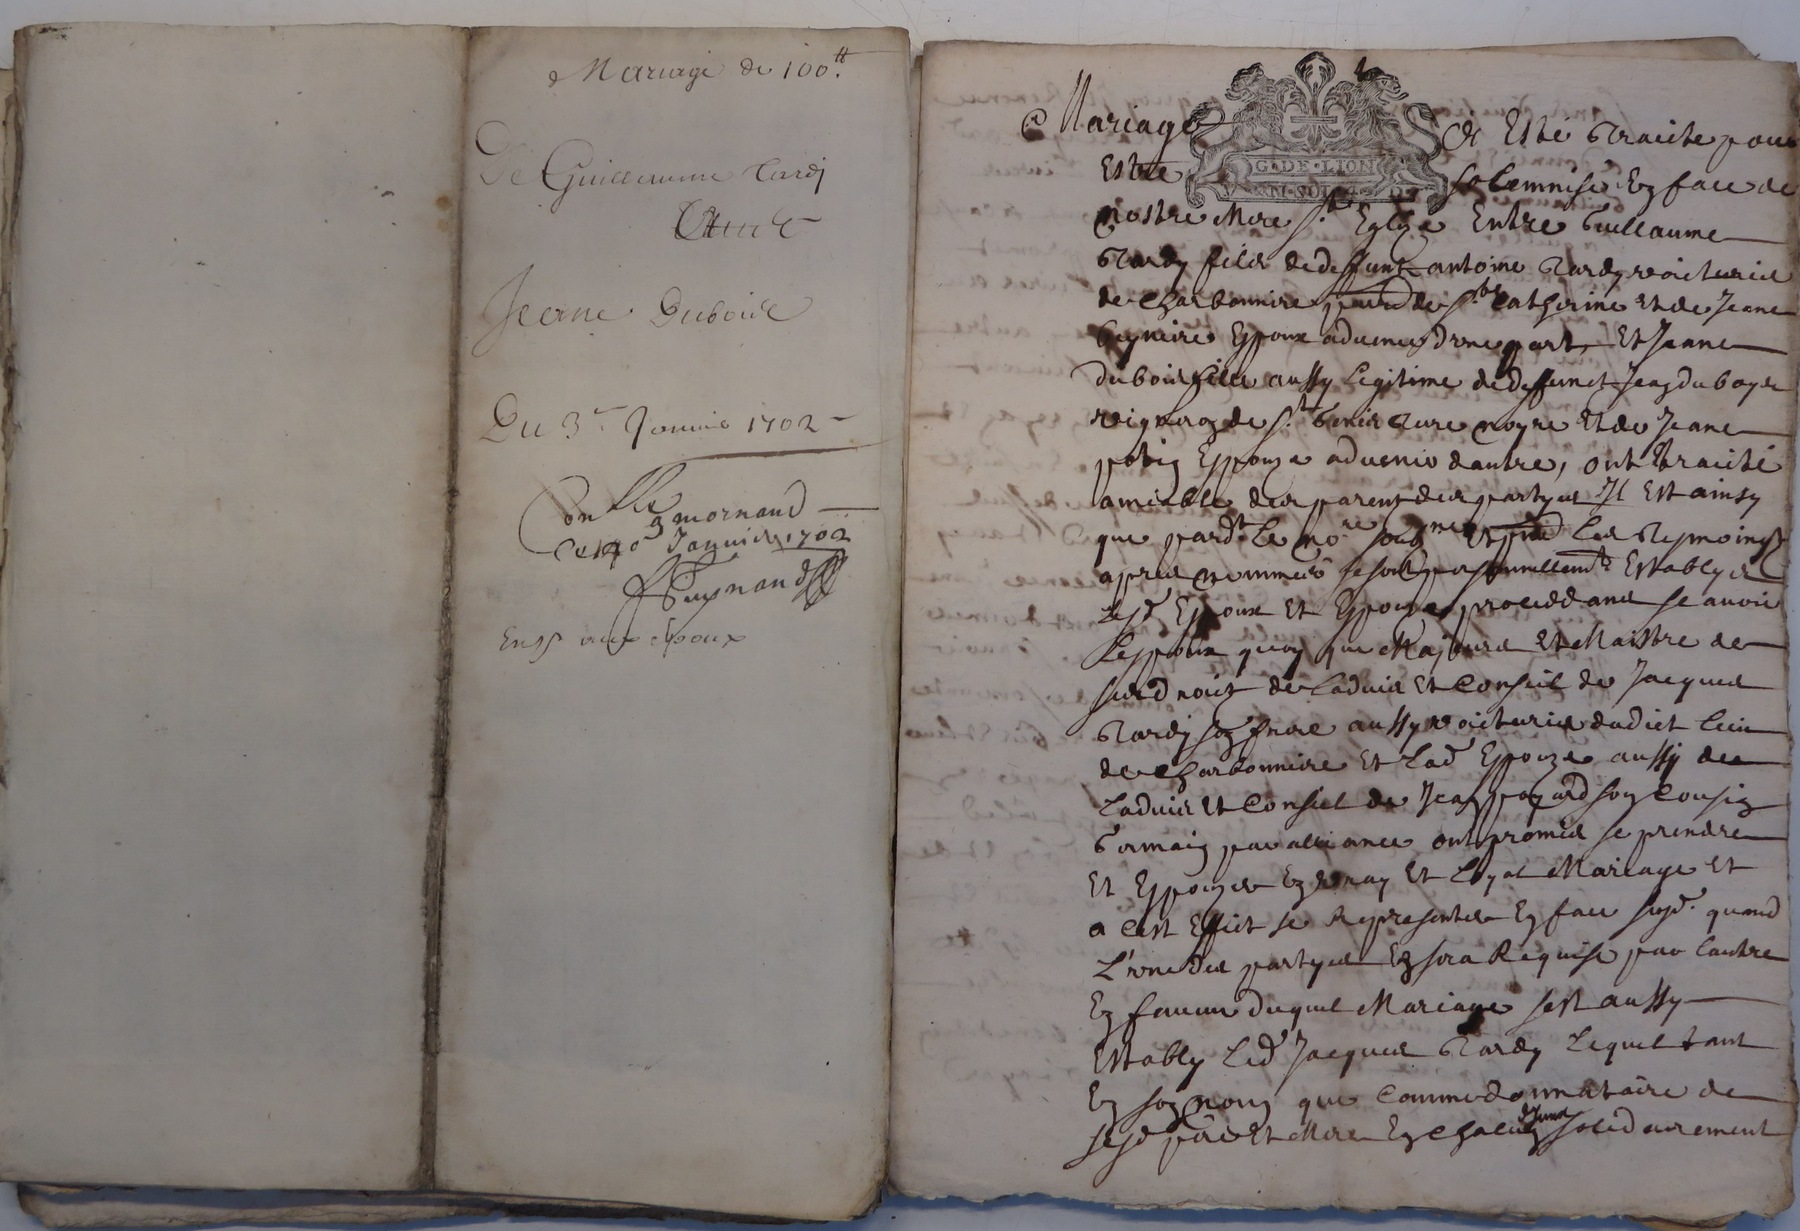 Mariage de 100tt
De Guillaume Tardj
Et de
Jeane Dubois
Du 3e Janvier 1702
Con[tro]lle a mornand
ce 14 Janvier 1702
Peysnaud
Exp. aux epoux
Mariage a Esté Traicte pour
G·DE·LION
Estre solemnise En face de
nostre Mere Ste Eglize Entre Guilleaume
Tardy fils de deffunt antoine Tardy voicturier
de Charbonnire parr de Ste Catherine et de Jeane
Espoux advenir d'une part, Et Jeane
dubois fille aussy legitime de deffunct Jean duboys
vigneron de St Genis Terre noyre Et de Jeane
Espouze advenir dautre, ont traicté
amiable des parent des partyes Il Est ainsy
que pardt le nore soubne et pnt les Tesmoings
apres nommés se sont personnellemt Establys
Lesd Espoux Et Espouze procedeans scavoir
Lespoux quoy que Majeurs et Maistre de
ses droict de Ladvis Et Conseil de Jacques
Tardy son frere aussy voicturier dudict lieu
de Charbonniere Et Lad Espouze aussy de
Ladvis Et Conseil de Jean poyard son Cousin
Germain par alliance ont promis se prendre
Et Espouzer En vray Et Loyal Mariage Et
a cest Effect se Representer En face susd. quand
L'une des partyes En sera Requise par lautre
En faveur duquel Mariage sest aussy
Estably Led Jacques Tardy Lequel tant
En son nom que comme donnataire de
sesd pere Et Mere En chacun d'iceux solidairement